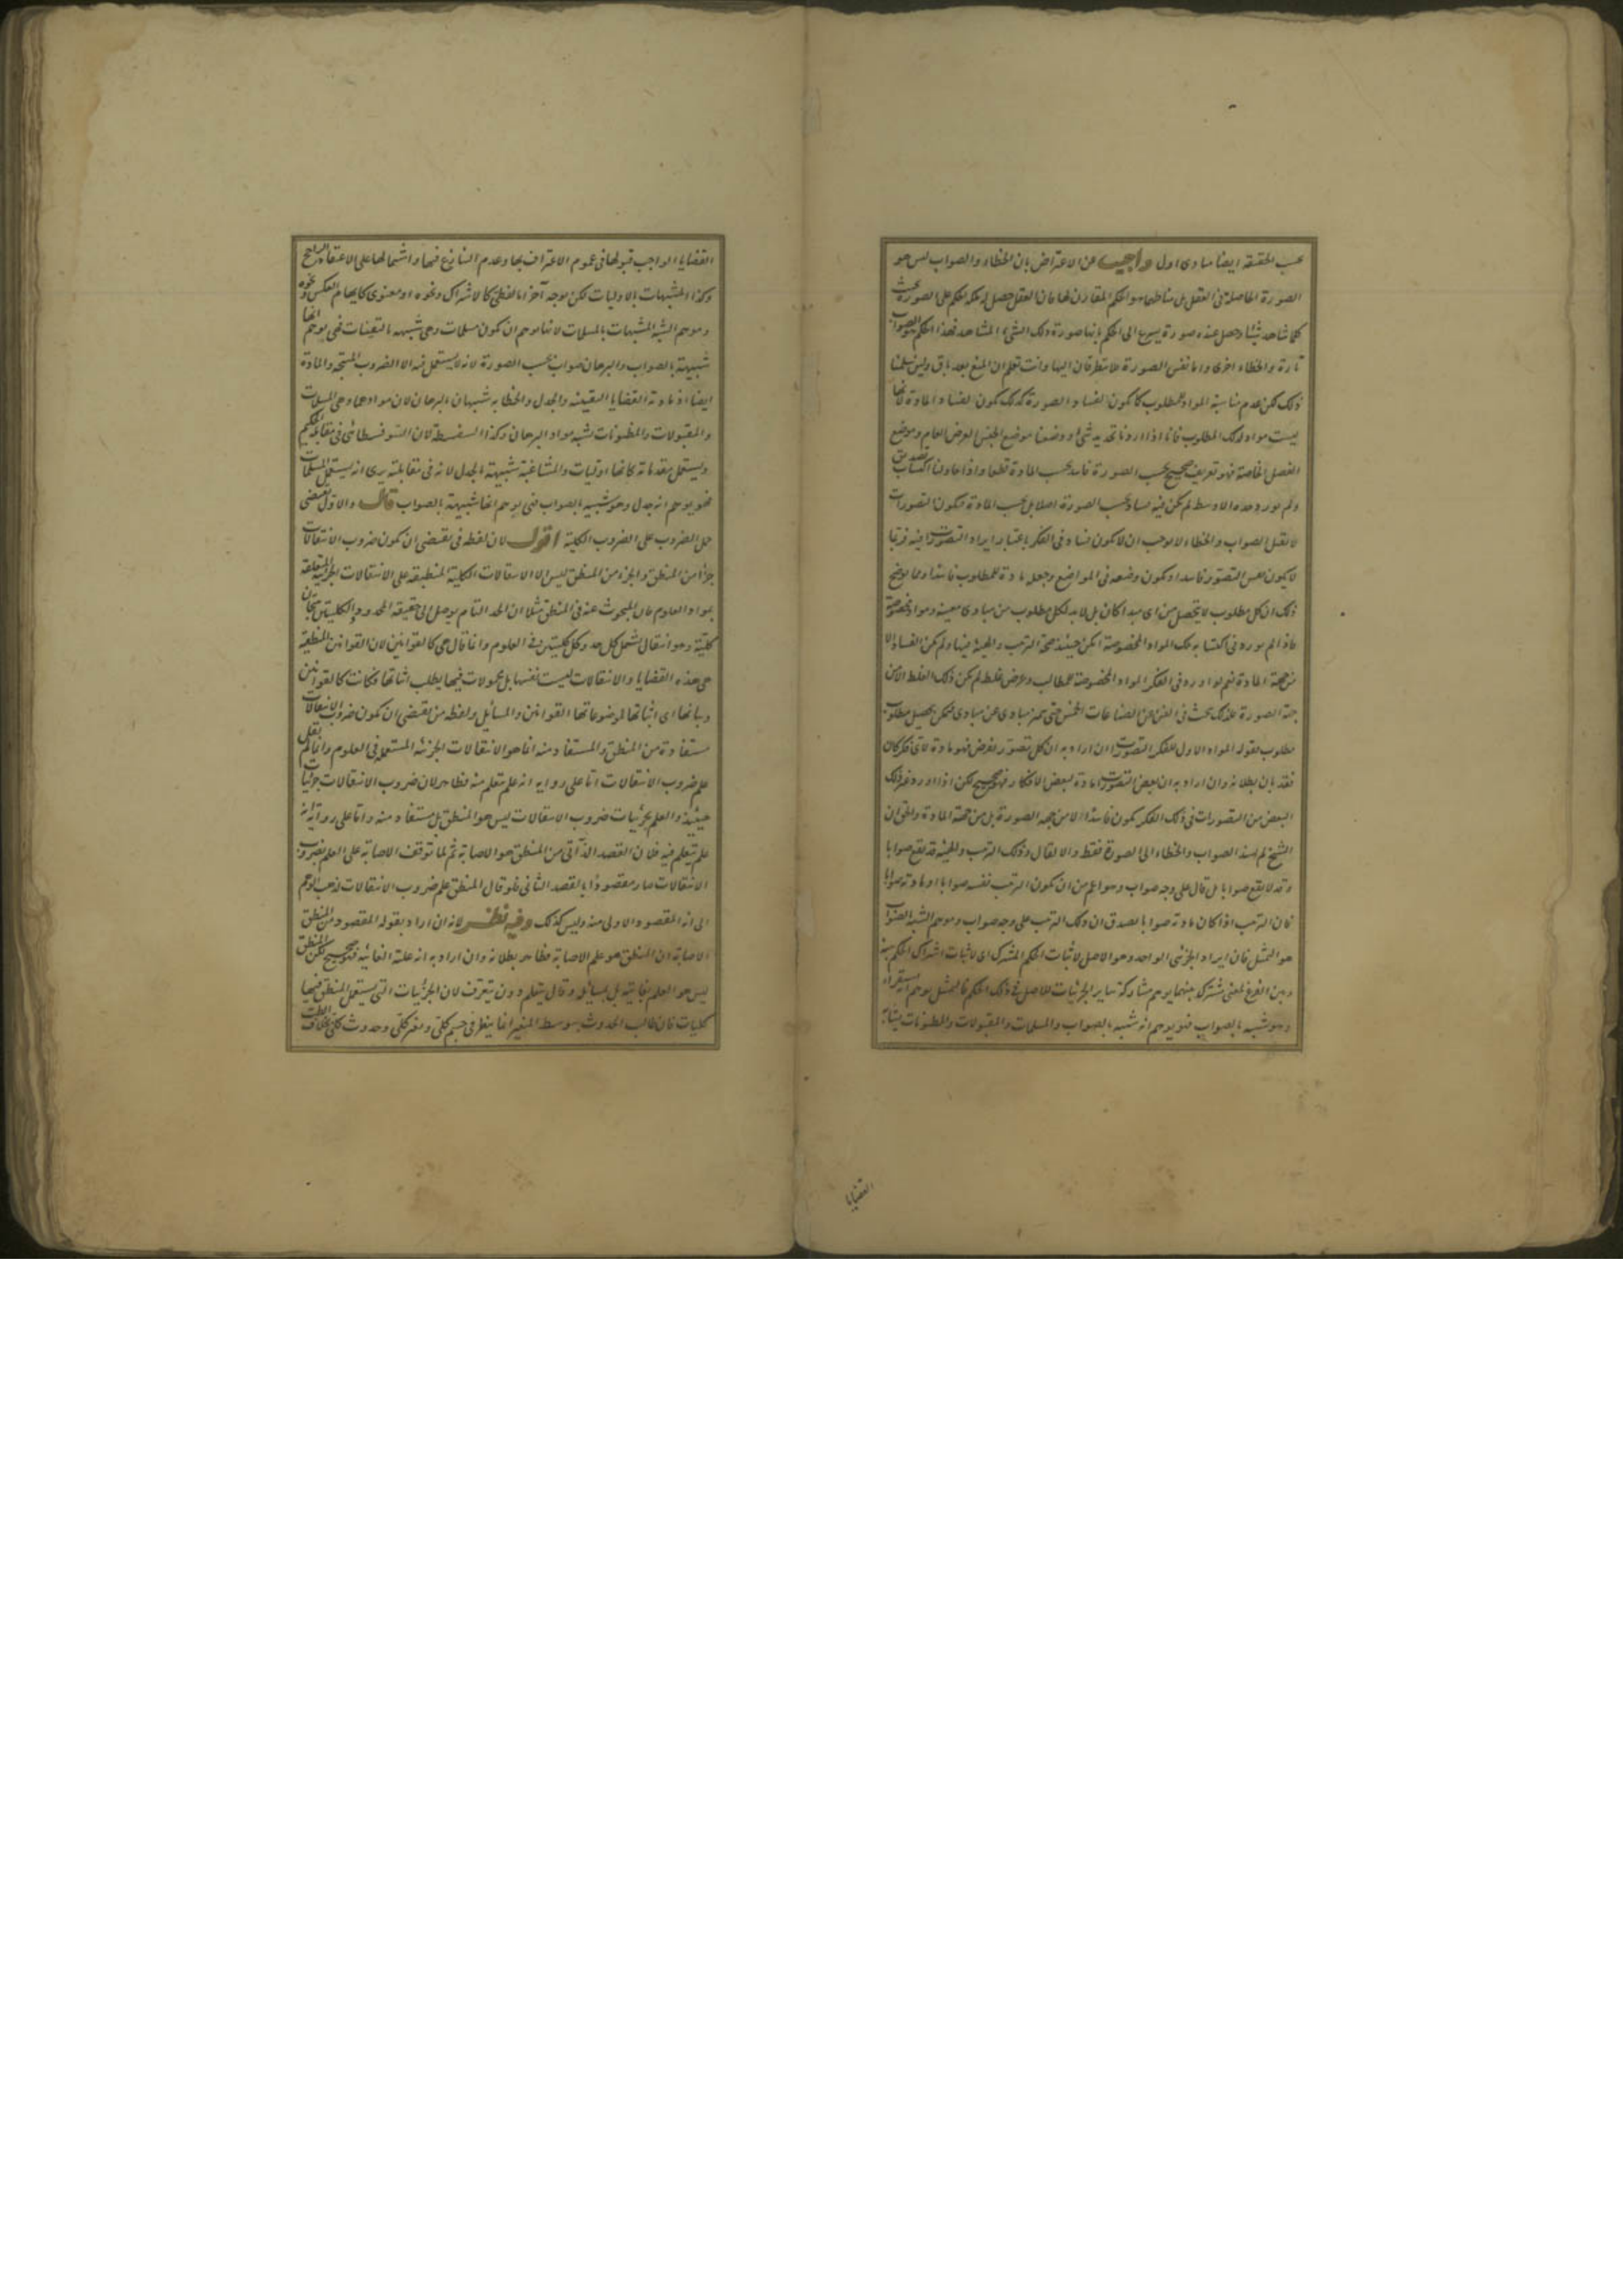 بحسب الحقيقة ايضا مبادى اول واجيب عن الاعتراض بان الخطاء والصواب ليس هو
الصورة الحاصلة فى العقل بل مناطهما هو الحكم المقارن لها فان العقل حصل له ملكة الحكم على الصور بحيث
كلما شاهد شيئا وحصل عنده صورة يسرع الى الحكم بانها صورة ذلك الشىء المشاهد فهذا الحكم هو الصواب
تارة والخطاء اخرى واما نفس الصورة فلا يتطرقان اليها وانت تعلم ان المنع بعد باق ولئن سلمنا
ذلك لكن عدم مناسبة المواد للمطلوب كما يكون لفساد الصورة كذلك يكون لفساد المادة لانها
ليست مواد لذلك المطلوب فانا اذا اردنا تحديد شىء ووضعنا موضع الجنس العرض العام وموضع
الفصل الخاصة فهو تعريف صحيح بحسب الصورة فاسد بحسب المادة قطعا واذا حاولنا اكتساب تصديق
ولم نورد حده الاوسط لم يكن فيه فساد بحسب الصورة اصلا بل بحسب المادة فكون التصورات
لا تقبل الصواب والخطاء لا يوجب ان لا يكون فساد فى الفكر باعتبار ايراد التصورات فيه فربما
لا يكون نفس التصور فاسدا ويكون وضعه فى المواضع وجعله مادة للمطلوب فاسدا ومما يوضح
ذلك ان كل مطلوب لا يتحصل من اى مبدا كان بل لا بد لكل مطلوب من مبادى معينة ومواد مخصوصة
فاذا لم يورد فى اكتسابه تلك المواد المخصوصة امكن حينئذ صحة الترتيب والهيئة فيها ولم يكن الفساد الا
من جهة المادة نعم لو اورد فى الفكر المواد المخصوصة للمطالب وعرض غلط لم يكن ذلك الغلط الا من
جهة الصورة فلذلك بحث فى الفن عن الصناعات الخمس حتى يتميز مبادى عن مبادى فيمكن تحصيل مطلوب
مطلوب فقوله المواد الاول للفكر التصورات ان اراد به ان كل تصور يفرض فهو مادة لاى فكر كان
فقد بان بطلانه وان اراد به ان بعض التصورات مادة لبعض الافكار فهو صحيح لكن اذا اورد غير ذلك
البعض من التصورات فى ذلك الفكر يكون فاسدا لا من جهة الصورة بل من جهة المادة والحق ان
الشيخ لم يسند الصواب والخطاء الى الصورة فقط والا لقال وذلك الترتيب والهيئة قد يقع صوابا
وقد لا يقع صوابا بل قال على وجه صواب وهو اعم من ان يكون الترتيب نفسه صوابا او مادته صوابا
فان الترتيب اذا كان مادته صوابا يصدق ان ذلك الترتيب على وجه صواب وموهم الشبه بالصواب
هو التمثيل فان ايراد الجزئى الواحد وهو الاصل لاثبات الحكم المشترك اى لاثبات اشتراك الحكم بينه
وبين الفرع لمعنى مشترك بينهما يوهم مشاركة ساير الجزئيات للاصل فى ذلك الحكم فالتمثيل يوهم انه استقراء
وهو شبيه بالصواب فهو يوهم انه شبيه بالصواب والمسلمات والمقبولات والمظنونات يشابه
القضايا
القضايا الواجب قبولها فى عموم الاعتراف بها وعدم التنازع فيها واشتمالها على الاعتقاد الراجح
وكذا المشبهات بالاوليات لكن لوجه آخر اما لفظى كالاشتراك ونحوه او معنوى كايهام العكس ونحوه
وموهم الشبه المشبهات بالمسلمات لانها يوهم ان يكون مسلمات وهى شبيهة باليقينيات فهى يوهم انها
شبيهة بالصواب والبرهان صواب بحسب الصورة لانه لا يستعمل فيه الا الضروب المنتجة والمادة
ايضا اذ مادته القضايا اليقينية والجدل والخطابة شبيهان بالبرهان لان موادهما وهى المسلمات
والمقبولات والمظنونات يشبه مواد البرهان وكذا السفسطة لان السوفسطائى فى مقابلة الحكيم
ويستعمل مقدماته كانها اوليات والمشاغبة شبيهة بالجدل لانه فى مقابلته يرى انه يستعمل المسلمات
فهو يوهم انه جدل وهو شبيه بالصواب فهى يوهم انها شبيهة بالصواب قال والاول يقتضى
حمل الضروب على الضروب الكلية اقول لان لفظه فى يقتضى ان يكون ضروب الانتقالات
جزأ من المنطق والجزء من المنطق ليس الا الانتقالات الكلية المنطبقة على الانتقالات الجزئية المتعلقة
بمواد العلوم فان المبحوث عنه فى المنطق مثلا ان الحد التام يوصل الى حقيقة المحدود والكليتين ينتجان
كلية وهو انتقال يشمل كل حد وكل كليتين فى العلوم وانما قال هى كالقوانين لان القوانين المنطقية
هى هذه القضايا والانتقالات ليست نفسها بل محمولات فيها يطلب اثباتها فكانت كالقوانين
وبيانها اى اثباتها لموضوعاتها القوانين والمسائل ولفظه من يقتضى ان يكون ضروب الانتقالات
مستفادة من المنطق والمستفاد منه انما هو الانتقالات الجزئية المستعملة فى العلوم وانما لم يقل
علم ضروب الانتقالات اما على رواية انه علم يتعلم منه فظاهر لان ضروب الانتقالات جزئيات
حينئذ والعلم بجزئيات ضروب الانتقالات ليس هو المنطق بل مستفاد منه واما على رواية انه
علم يتعلم فيه فلان القصد الذاتى من المنطق هو الاصابة ثم لما توقف الاصابة على العلم بضروب
الانتقالات صار مقصودا بالقصد الثانى فلو قال المنطق علم ضروب الانتقالات لذهب الوهم
الى انه المقصود الاولى منه وليس كذلك وفيه نظر لانه ان اراد بقوله المقصود من المنطق
الاصابة ان المنطق هو علم الاصابة فظاهر بطلانه وان اراد به انه علته الغائية فهو صحيح لكن المنطق
ليس هو العلم بغايته بل بمسائله وقال يتعلم دون يتعرف لان الجزئيات التى يستعمل المنطق فيها
كليات فان طالب الحدوث بتوسط المتغير انما ينظر فى جسم كلى وتغير كلى وحدوث كلى بخلاف الطب